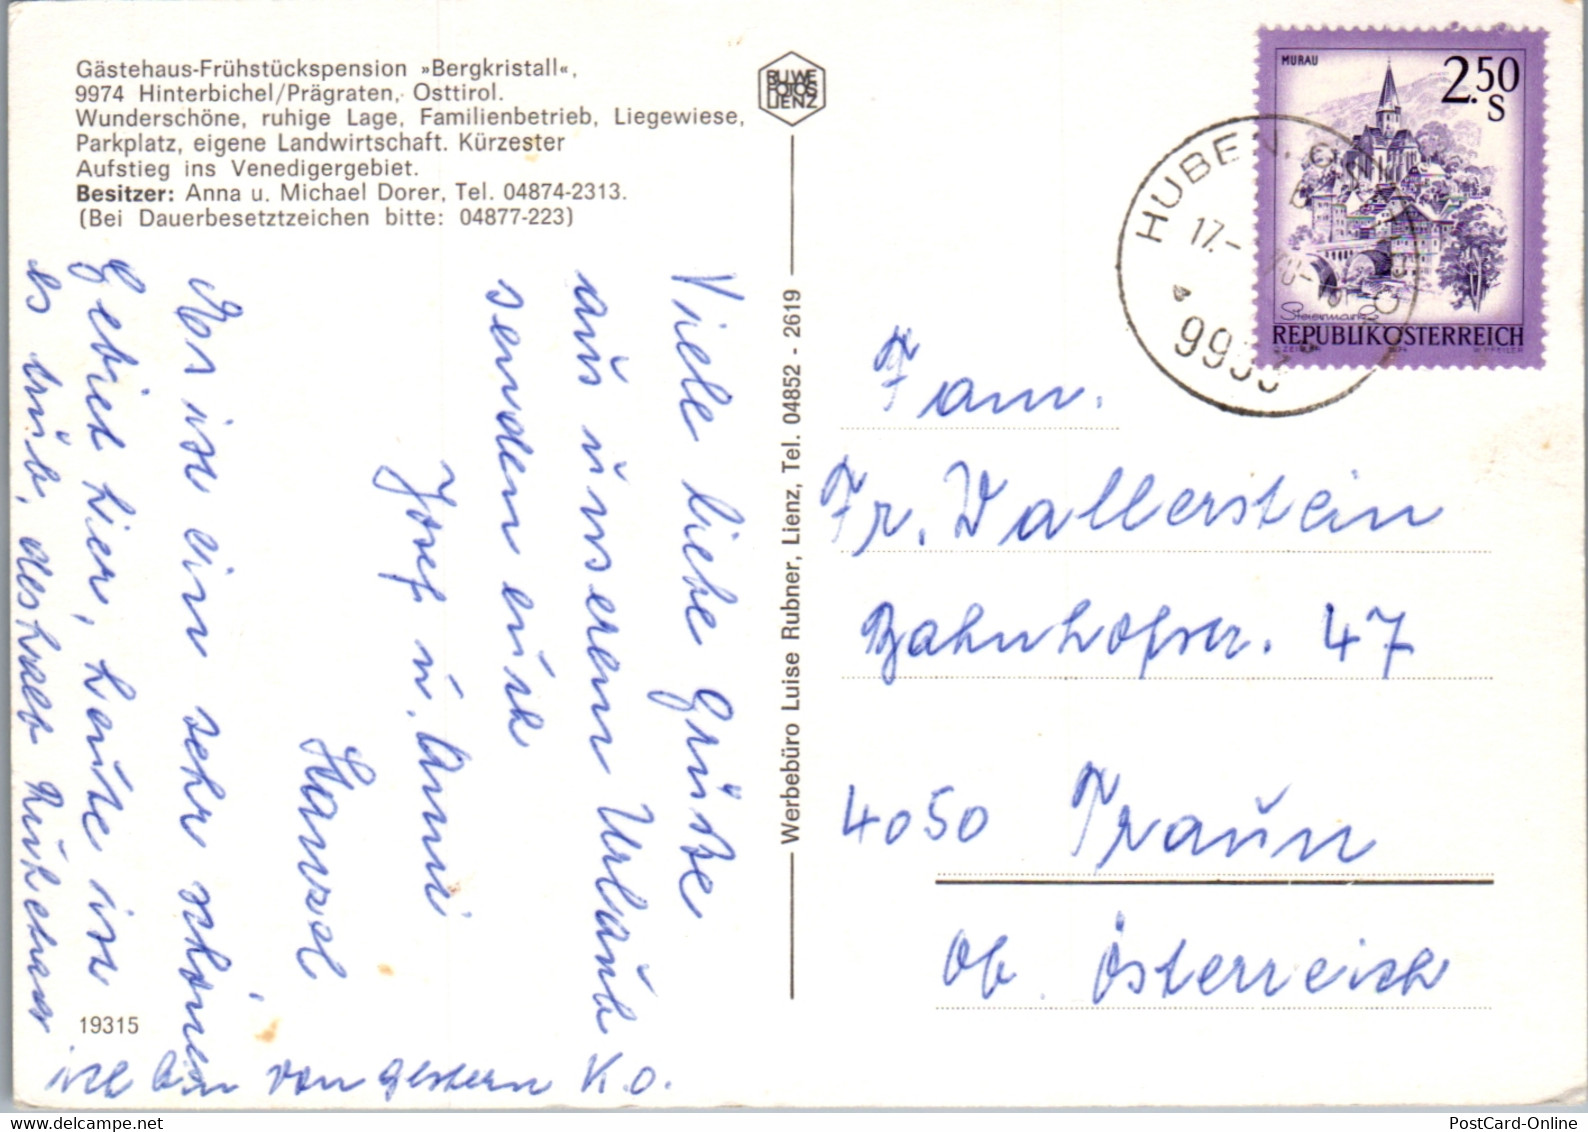 Gästehaus-Frühstückspension »Bergkristall«,
9974 Hinterbichel/Prägraten, Osttirol.
Wunderschöne, ruhige Lage, Familienbetrieb, Liegewiese,
Parkplatz, eigene Landwirtschaft. Kürzester
Aufstieg ins Venedigergebiet.
Besitzer: Anna u. Michael Dorer, Tel. 04874-2313.
(Bei Dauerbesetztzeichen bitte: 04877-223)
RUWE
FOTOS
LIENZ
MURAU
2.50
S
Steiermark
REPUBLIK ÖSTERREICH
HUBEN I. OSTTIROL
17.-
Werbebüro Luise Rubner, Lienz, Tel. 04852 - 2619
Viele liebe Grüße
aus unseren Urlaub
senden euch
Josef u. Anni
Hansel
Es ist ein sehr schönes
Gebiet hier, heute ist
es trüb, deshalb ruhen wir
ich bin von gestern K.O.
19315
Fam.
Fr. Wallerstein
Bahnhofstr. 47
4050 Traun
Ob. Österreich
PostCard-Online
www.delcampe.net